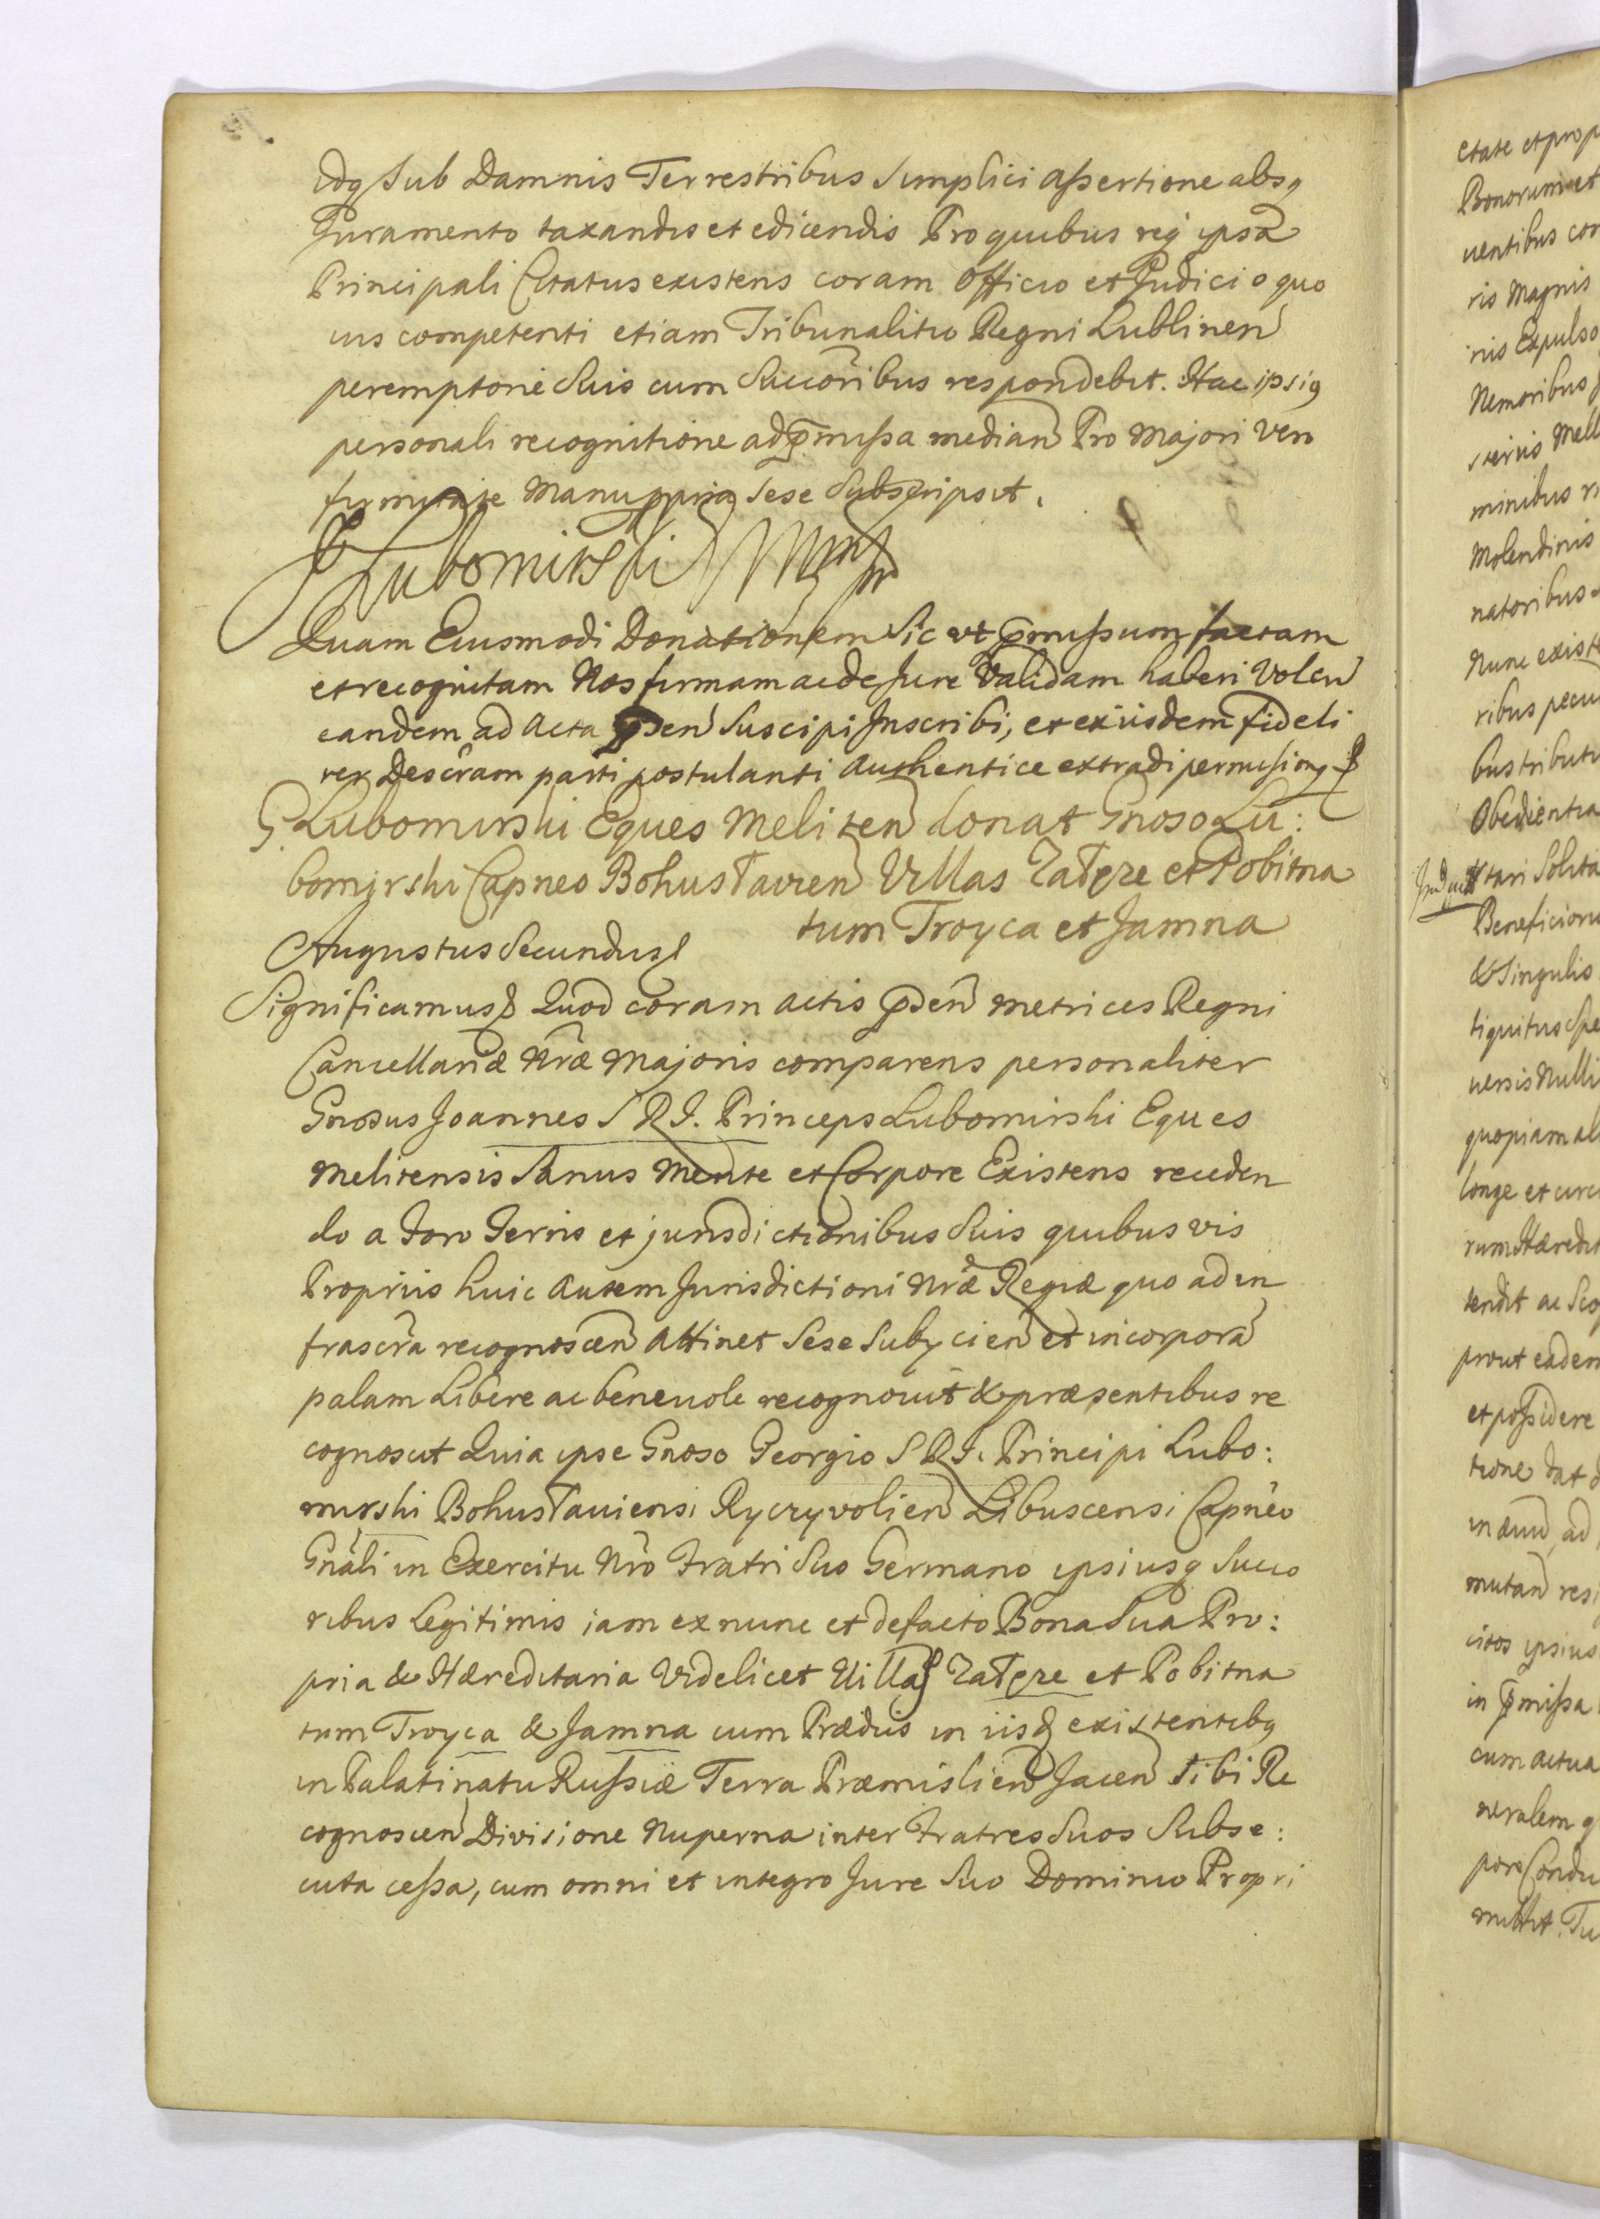 idq sub Damnis Terrestribus simplici assertione absq
Juramento taxandis et edicendis Pro quibus req ipsa
Principali Citatus existens coram Officio et Judicio quo
vis competenti etiam Tribunalitio Regni Lublinen
peremptorie suis cum Succoribus respondebit. Hac ipsiq
personali recognitione ad pmissa median Pro Majori Vero
firmitate Manu ppria sese Subscripsit.
Lubomirski mp
Quam Eiusmodi Donationem Sic ut pmissum factam
et recognitam Nos firmam ac de Jure Validam haberi Volen
eandem ad Acta psen Suscipi Inscribi, et ex iisdem fideli
ter Descram parti postulanti Authentice extradi permisimq
G. Lubomirski Eques Meliten donat Gnoso Lu:
bomirski Capneo Bohusłavien Villas Załęze et Pobitna
tum Troyca et Jamna
Augustus Secundus
Significamus Quod coram actis psen Metrices Regni
Cancellariæ Nræ Majoris comparens personaliter
Gnosus Joannes S R I. Princeps Lubomirski Eques
Melitensis Sanus Mente et Corpore Existens receden
do a Foro Terris et jurisdictionibus Suis quibusvis
Propriis huic autem Jurisdictioni Nræ Regiæ quo ad in
frascra recognoscen Attinet Sese Subycien et incorpora
palam Libere ac benevole recognovit & præsentibus re
cognoscit Quia ipse Gnoso Georgio S R I. Principi Lubo:
mirski Bohusłaviensi Ryczyvolien Libuscensi Capneo
Gnali in Exercitu Nro Fratri Suo Germano ipsiusq Succo
ribus Legitimis iam ex nunc et de facto Bona Sua Pro:
pria & Hæreditaria Videlicet Villas Załęze et Pobitna
tum Troyca & Jamna cum Prædiis in iisd existentibq
in Palatinatu Russiæ Terra Præmislien Jacen Sibi Re
cognoscen Divisione Nuperna inter Fratres Suos Subse:
cuta cessa, cum omni et integro Jure Suo Dominio Propri
etate et prop
Bonorum et
uentibus cor
ris Magnis
nis Expulso
Nemoribus
steriis Mell
minibus ri
Molendinis
natoribus
Nunc existe
ribus pecu
bus tributi
Obedientia
tari Solita
Beneficioru
& Singulis
tiquitus Spe
uersis Nulli
quopiam al
longe et circ
rum Hæredit
tendit ac Sco
prout eadem
et possidere
tione dat d
in ævu ad
mutand resi
citos ipsius
in pmissa
cum actua
neralem q
pore Condu
mittit. Tu